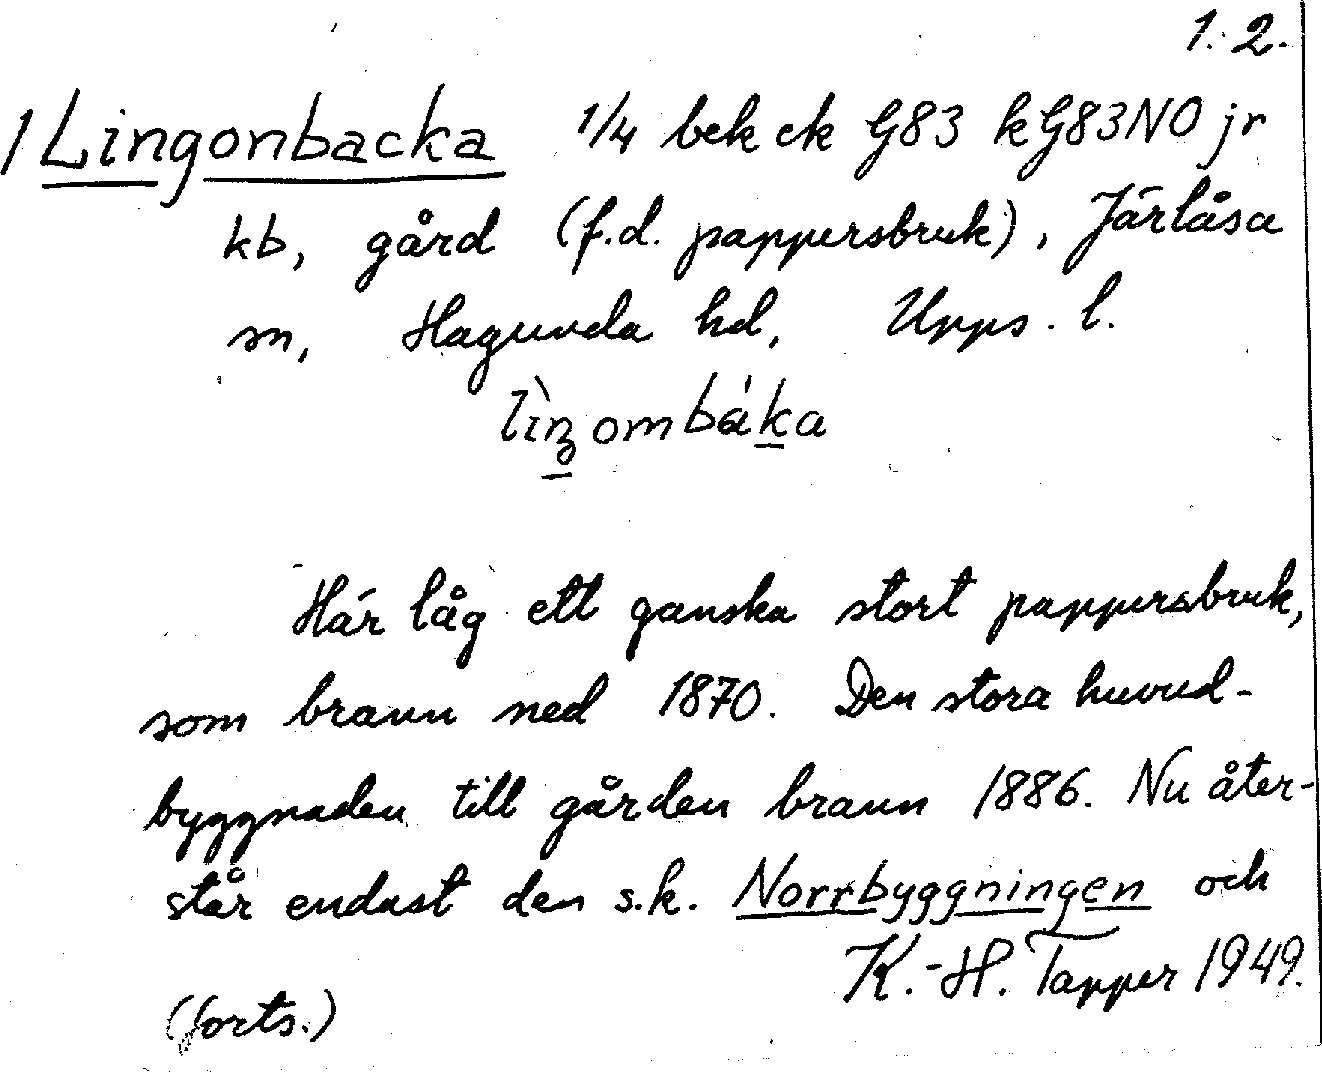 1:2.
/ Lingonbacka 1/4 bek ek G83 kG83NO jr
kb, gård (f.d. pappersbruk), Järlåsa
sn, Hagunda hd, Upps. l.
Här låg ett ganska stort pappersbruk,
som brann ned 1870. Den stora huvud-
byggnaden till gården brann 1886. Nu åter-
står endast den s.k. Norrbyggningen och
K.-H. Tapper 1949.
(forts.)